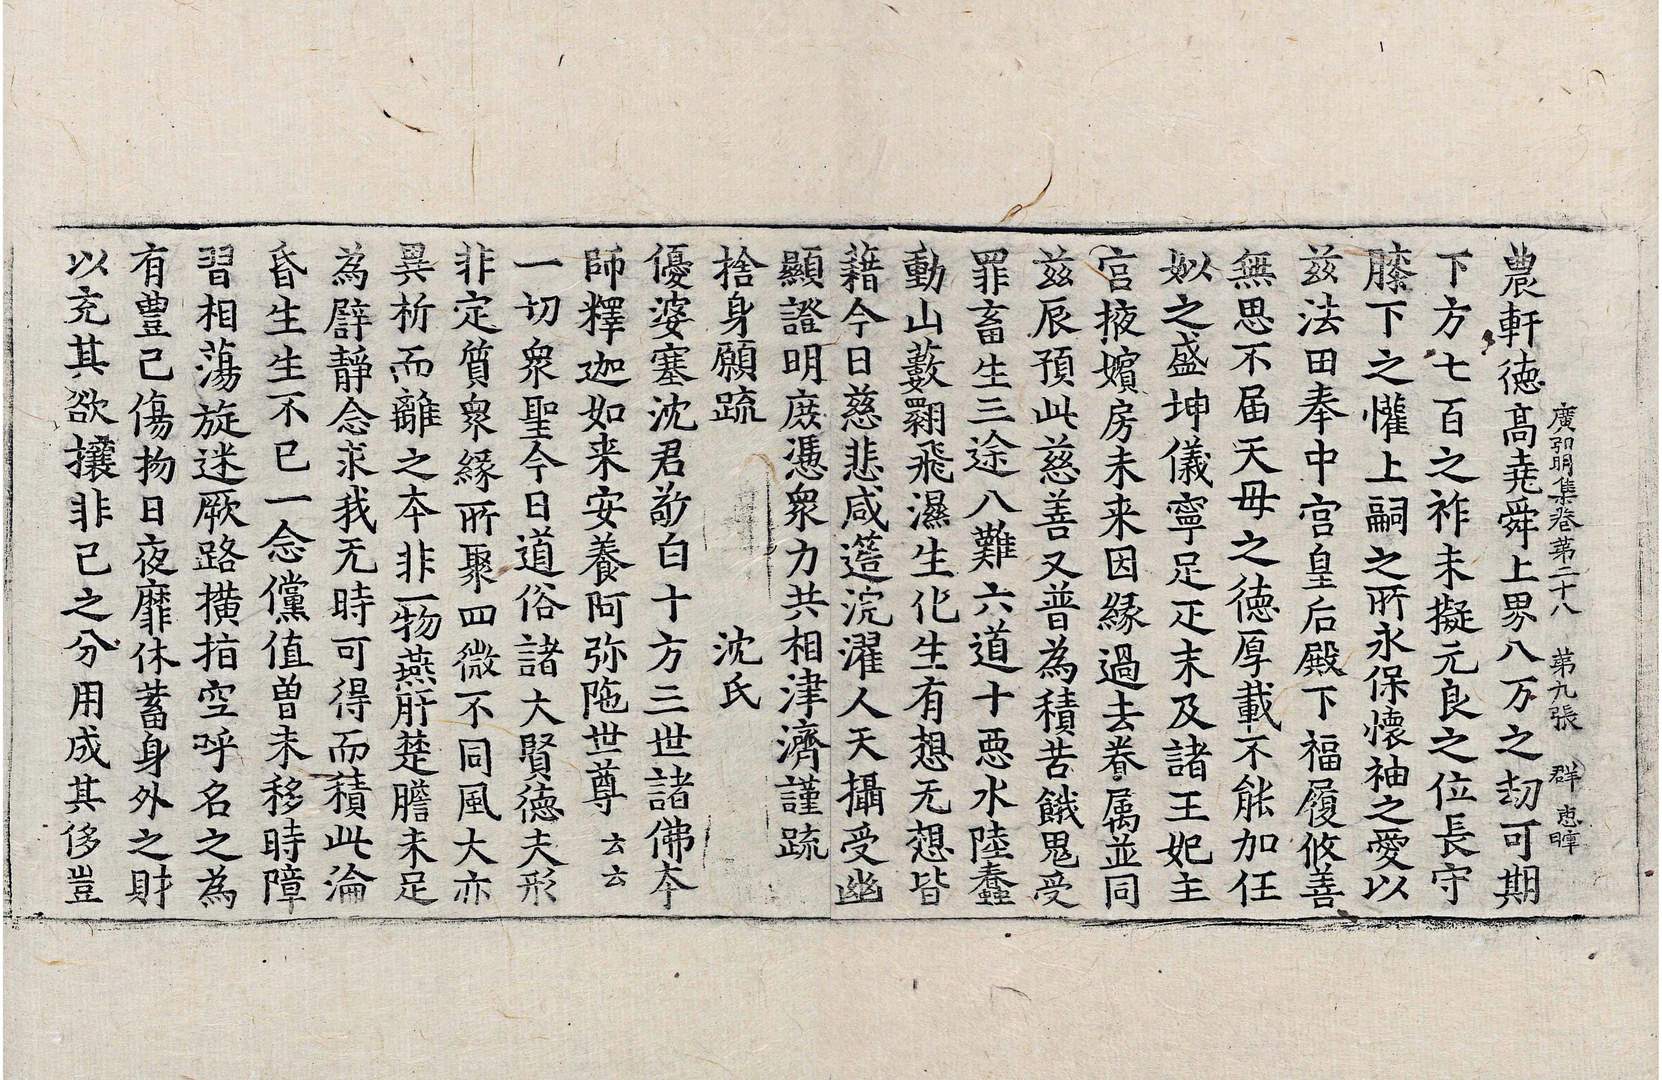 廣弘明集卷第二十八　第九張　群　惠暉
農軒德髙堯舜上界八万之劫可期
下方七百之祚未擬元良之位長守
膝下之懽上嗣之所永保懷袖之愛以
兹法田奉中宫皇后殿下福履攸善
無思不届天母之德厚載不能加任
姒之盛坤儀寧足疋末及諸王妃主
宫掖嬪房未来因緣過去眷属並同
兹辰預此慈善又普為積苦餓鬼受
罪畜生三途八難六道十惡水陸蠢
動山藪翾飛濕生化生有想无想皆
藉今日慈悲咸蒞浣濯人天攝受幽
顯證明庶憑衆力共相津濟謹䟽
捨身願䟽　沈氏
優婆塞沈君敬白十方三世諸佛本
師釋迦如来安養阿弥陁世尊云云
一切衆聖今日道俗諸大賢德夫形
非定質衆緣所聚四微不同風大亦
異析而離之本非一物燕肝楚膽未足
為譬静念求我无時可得而積此淪
昏生生不已一念儻值曾未移時障
習相蕩旋迷厥路横指空呼名之為
有豐己傷物日夜靡休蓄身外之財
以充其欲攘非己之分用成其侈豈